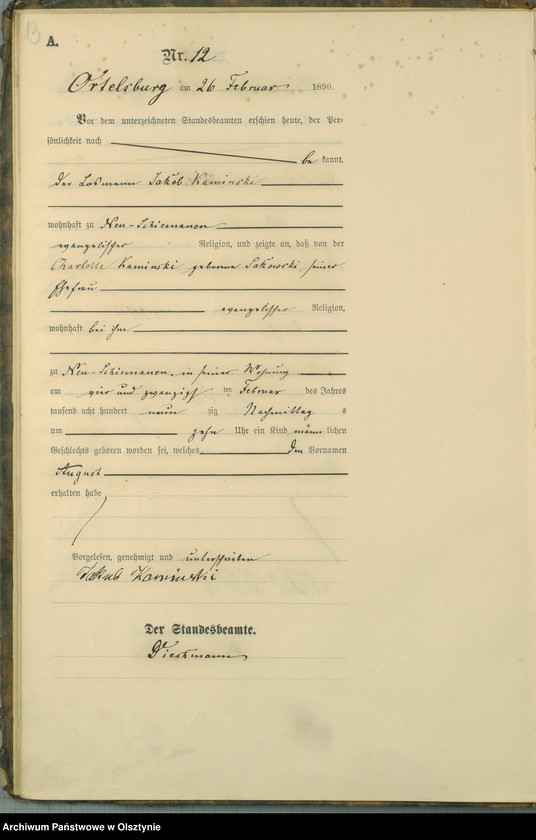 13
A.
Nr. 12
Ortelsburg am 26 Februar 1890.
Vor dem unterzeichneten Standesbeamten erschien heute, der Per-
sönlichkeit nach
be kannt,
der Losmann Jakob Kaminski
wohnhaft zu Neu-Schiemanen
evangelischer Religion, und zeigte an, daß von der
Charlotte Kaminski geborene Sakowski, seiner
Ehefrau
evangelischer Religion,
wohnhaft bei ihm
zu Neu-Schiemanen, in seiner Wohnung
am vier und zwanzigst ten Februar des Jahres
tausend acht hundert neun zig Nachmittag s
um zehn Uhr ein Kind männ lichen
Geschlechts geboren worden sei, welches den Vornamen
August
erhalten habe
Vorgelesen, genehmigt und unterschrieben
Jakub Kaminski
Der Standesbeamte.
Archiwum Państwowe w Olsztynie